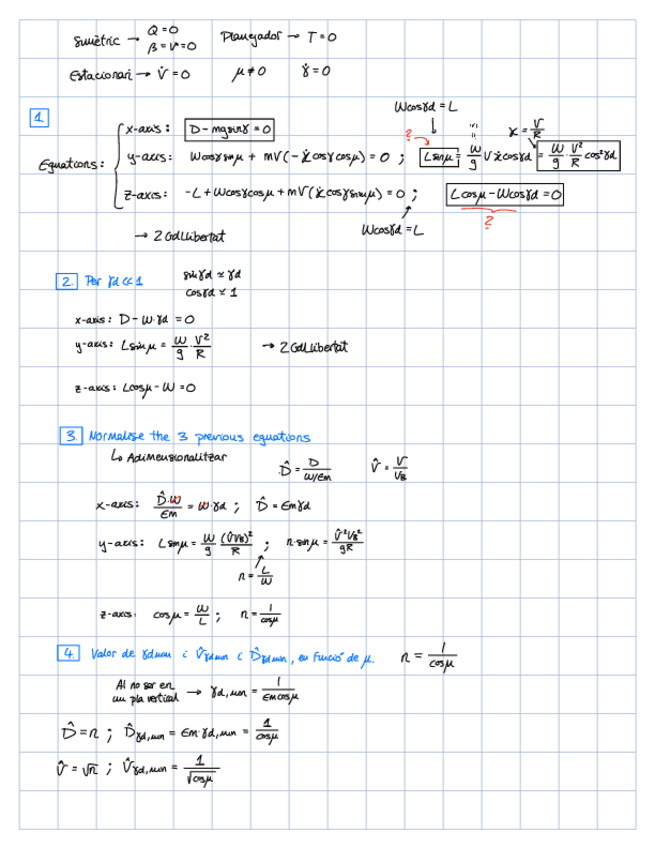 Simètric → Q=0
β=ν=0
Planejador → T=0
Estacionari → V̇=0 μ≠0 γ̇=0
Wcosγd=L
1.
Equations:
x-axis: D-mgsinγ=0
χ̇=V/R
y-axis: Wcosγsinμ + mV(-χ̇cosγcosμ)=0 ; Lsinμ = W/g Vχ̇cosγd = W/g · V²/R cos²γd
?
z-axis: -L+Wcosγcosμ+mV(χ̇cosγsinμ)=0 ; Lcosμ-Wcosγd=0
?
Wcosγd=L
→ 2 Gd Llibertat
2. Per γd<<1
sinγd≃γd
cosγd≃1
x-axis: D-W·γd=0
y-axis: Lsinμ = W/g · V²/R → 2 Gd Llibertat
z-axis: Lcosμ-W=0
3. Normalise the 3 previous equations
↳ Adimensionalitzar
D̂ = D/(W/Em) V̂ = V/VB
x-axis: D̂·W/Em = W·γd ; D̂ = Emγd
y-axis: Lsinμ = W/g (V̂VB)²/R ; n·sinμ = V̂²VB²/gR
n = L/W
z-axis: cosμ = W/L ; n = 1/cosμ
4. Valor de γdmin i V̂γdmin i D̂γdmin, en funció de μ. n = 1/cosμ
Al no ser en
un pla vertical → γd,min = 1/Emcosμ
D̂=n ; D̂γd,min = Em·γd,min = 1/cosμ
V̂=√n ; V̂γd,min = 1/√cosμ